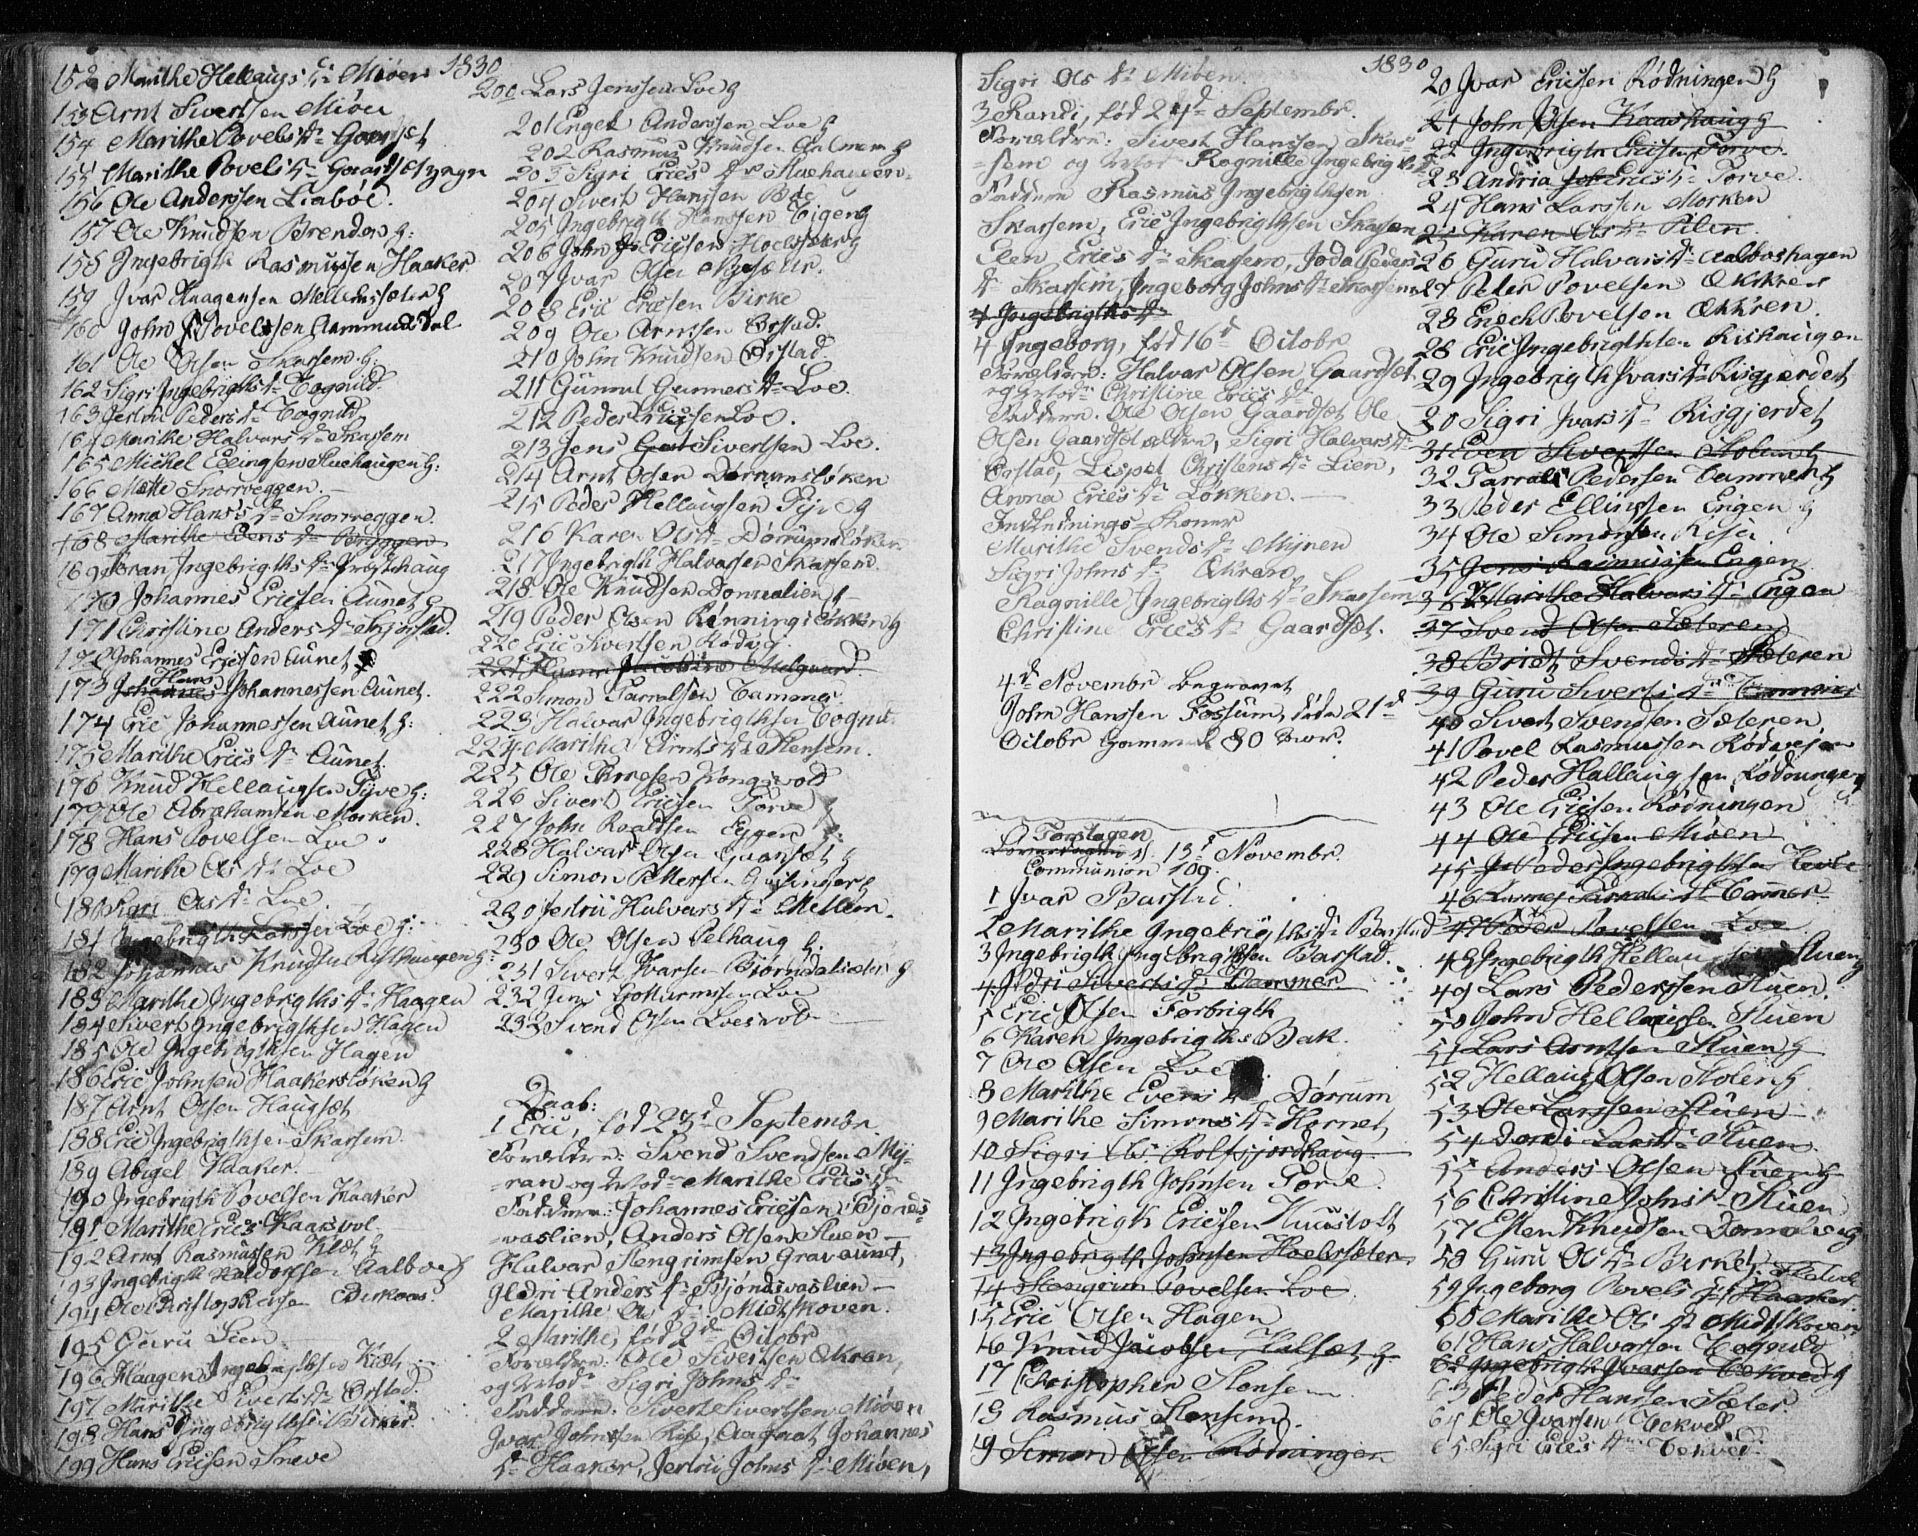 1830
152 Marithe Hellaugs Dr Miøen
153 Arnt Sivertsen Miøen
154 Marithe Povels Dr Gaardset
155 Marithe Povels Dr Gaardset
156 Ole Andersen Liabøe
157 Ole Knudsen Brenden g:
158 Ingebrigth Rasmussen Haaker
159 Ivar Haagensen Mellemsæter g
160 John Povelssen Aammuddal
161 Ole Olsen Skarsem g:
162 Sigri Ingebrigths Dr Tognild
163 Jertru Peders Dr Tognild
164 Marithe Halvars Dr Skarsem
165 Mickel Ellingsen Stuehaugen g:
166 Mette Snorreggen
167 Anna Hanss Dr Snorreggen
168 Marithe Dr Bryggen
169 Ingebrigths Dr
170 Johannes Ericsen Aunet g
171 Christine Anders Dr
172 Johannes Ericsen Aunet
173 Hans Johannessen Aunet.
174 Eric Johannessen Aunet g:
175 Marithe Erics Dr Aunet
176 Knud Hellaugsen Fyve g:
177 Ole Abrahamsen Morken.
178 Hans Povelsen Loe
179 Marithe Ols Dr Loe
180 Kari Ols Dr Loe.
181 Ingebrigth Larssen Loe g:
182 Johannes Knudsen Risthaugen g:
183 Marithe Ingebrigths Dr Haagen
184 Sivert Ingebrigthsen Hagen
185 Ole Ingebrigthsen Hagen
186 Eric Johnsen Haakersløken g
187 Arnt Olsen Haugset
188 Eric Ingebrigthsen Skarsem
189 Abigel Haaker.
190 Ingebrigth Povelsen Haaker
191 Marithe Erics Kaasvol
192 Arnt Rasmussen Klæt g
193 Ingebrigth Haldorsen Aalboe g
194 Ole Christophersen Birkaas
195 Guru Lien
196 Haagen Ingebrigthsen Klæt
197 Marithe Siverts Dr Ørstad.
198 Hans Ingebrigthsen
199 Hans Ericsen Sneve
200 Lars Jenssen Loe g
201 Engel Anderssen Loe g
202 Rasmus Knudsen Aalmen g
203 Sigri Erics Dr Stuehaugen.
204 Sivert Hanssen Bøe
205 Ingebrigth Hanssen Eigen g
206 John Ericsen Hoelsæter g
207 Ivar Olsen Nysætr.
208 Eric Ericsen Birke
209 Ole Arntsen Ørstad.
210 John Knudsen Ørstad.
211 Gunnul Gunners Dr Loe.
212 Peder Ericsen Loe.
213 Jens Sivertsen Loe.
214 Arnt Olsen Dørrumsløken
215 Peder Hellaugsen Fyve g
216 Karen Ols Dr Dørrumsløken
217 Ingebrigth Halvarsen Skarsem
218 Ole Knudsen Donnalien g
219 Peder Olsen Rønningsløkken g
220 Eric Sivertsen Rødsyg
221 Hanna Jacobine Melgaard.
222 Simon Tarralsen Tammer
223 Halvar Ingebrigthsen Togni.
224 Marithe Arnts Dr Stensem.
225 Ole Arnesen Kongsvold
226 Sivert Ericsen Torve
227 John Roaldsen Eggen
228 Halvar Olsen Gaardset g
229 Simon Pettersen
230 Jertru Halvars Dr Mellem.
230 Ole Olsen Pelhaug g:
231 Sivert Ivarsen Bjørndalsæter g
232 Jens Gottormsen Loe
232 Svend Olsen Loesvold

Daab:
1 Eric, fød 23d Septembr.
Forældre: Svend Svendsen My-
-ran og Modr Marithe Erics Dr
Faddere: Johannes Ericsen Bjønds-
-vaslien, Anders Olsen Stuen
Halvar Stengrimsen Gravaunet,
Gjedri Anders Dr Bjøndsvaslien
Marithe Ols Dr Midtskoven.
2 Marithe, fød 2d Octobr
Forældre: Ole Sivertsen Økran,
og Modr Sigri Johns Dr
Faddere: Sivert Sivertsen Miøen
Ivar Johnsen Rise, Aagaat Johannes
Dr Haaker, Jertru Johns Dr Miøen,
1830
Sigri Ols Dr Miøen
3 Randi, fød 24d Septembr.
Forældre: Sivert Hanssen Skar-
-sem og Modr Ragnille Ingebrigths Dr
Faddere Rasmus Ingebrigthsen
Skarsem, Eric Ingebrigthsen Skarsem
Elen Erics Dr Skarsem, Joda Peders
Dr Skarsem, Ingeborg Johns Dr Skarsem
4 Ingebrigths Dr
4 Ingeborg, fød 16d Octobr
Forældre: Halvar Olsen Gaardset
og Modr Christine Erics Dr
Faddere. Ole Olsen Gaardset Ole
Olsen Gaardset ældre, Sigri Halvars Dr
Ørstad, Lispet Christens Dr Lien,
Anna Erics Dr Løkken.
Indlednings-Koner
Marithe Svends Dr Myren
Sigri Johns Dr Økren
Ragnille Ingebrigths Dr Skarsem
Christine Erics Dr Gaardset.

4d Novembr begravet
John Hanssen Fossum, døde 21d
Octobr gammel 80 Aar.

Torsdagen
d. 15d Novembr.
Communion 109.
1 Ivar Barstad
2 Marithe Ingebrigths Dr Barstad
3 Ingebrigth Ingebrigthsen Barstad.
4 Siverts Dr Tammer
5 Eric Olsen Forbrigth
6 Karen Ingebrigths Bak.
7 Ole Olsen Loe
8 Marithe Evens Dr Dørrum
9 Marithe Simons Dr Hornet
10 Sigri Ols Rolfsjordhaug
11 Ingebrigth Johnsen Torve.
12 Ingebrigth Ericsen Huusvolt
13 Ingebrigth Johnsen Hoelsæter
14 Stengrim Povelsen Loe
15 Eric Olsen Hagen
16 Knud Jacobsen Halset g
17 Christopher Stensem
18 Rasmus Stensem.
19 Simon Olsen Rødningen
20 Ivar Ericsen Rødningen g
21 John Olsen Kaashaug g
22 Ingebrigth Ericsen Torve.
23 Andria Erics Dr Torve.
24 Hans Larssen Morken
25 Karen Ols Dr Pilen
26 Guru Halvars Dr Aalboshagen
27 Peder Povelsen Økkren
28 Enoch Povelsen Økkren.
28 Eric Ingebrigthsen Rishaugen
29 Ingebrigth Ivars Dr Risgjerdet
30 Sigri Ivars Dr Risgjerdet
31 Even Sivertsen Holum g
32 Tarrald Pedersen Tammer g
33 Peder Ellingsen Engen g
34 Ole Simonsen Rise
35 Jens Rasmussen Engen
36 Marithe Halvars Dr Engen
37 Svend Olsen Sæteren
38 Bridt Svends Dr Sæteren
39 Guru Siverts Dr Tammer
40 Sivert Svensen Sæteren
41 Povel Rasmussen
42 Peder Hallaugsen Rødningen g
43 Ole Ericsen Rødningen
44 Ole Ericsen Miøen
45 Peder Ingebrigthsen
46 Tarrals Dr Tammer
47 Peder Povelsen Loe
48 Ingebrigth Hellaugsen Stuen g
49 Lars Pederssen Stuen.
50 John Hellaugsen Stuen
51 Lars Arntsen Stuen g
52 Hellaug Olsen Stolen g.
53 Ole Larssen Stuen
54 Dordi Lars Dr Stuen.
55 Anders Olsen Stuen g
56 Christine Johns Dr Stuen
57 Esten Knudsen Donnalien g
58 Guru Ols Dr Birket
59 Ingeborg Povels Dr Haaker.
60 Marithe Ols Dr Midtskoven
61 Hans Halvorsen Tognild
62 Ingebrigth Ivarsen Tekved g
63 Peder Hanssen Sæter.
64 Ole Ivarsen Tekved
65 Sigri Erics Dr Tekved